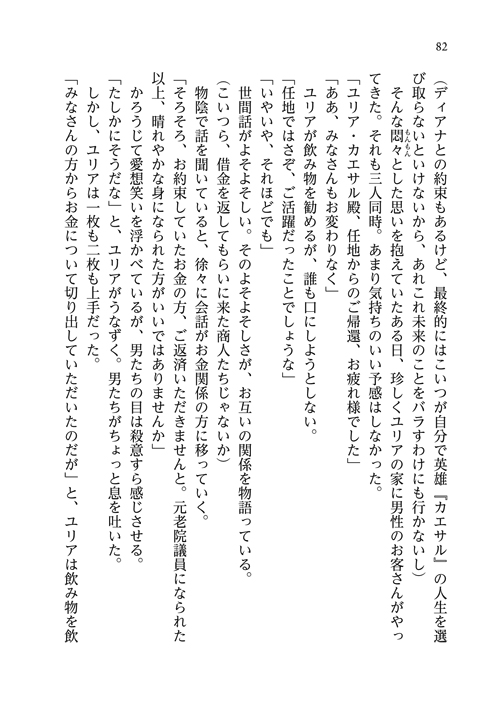 82
（ディアナとの約束もあるけど、最終的にはこいつが自分で英雄『カエサル』の人生を選
び取らないといけないから、あれこれ未来のことをバラすわけにも行かないし）
そんな悶々とした思いを抱えていたある日、珍しくユリアの家に男性のお客さんがやっ
もんもん
てきた。それも三人同時。あまり気持ちのいい予感はしなかった。
「ユリア・カエサル殿、任地からのご帰還、お疲れ様でした」
「ああ、みなさんもお変わりなく」
ユリアが飲み物を勧めるが、誰も口にしようとしない。
「任地ではさぞ、ご活躍だったことでしょうな」
「いやいや、それほどでも」
世間話がよそよそしい。そのよそよそしさが、お互いの関係を物語っている。
（こいつら、借金を返してもらいに来た商人たちじゃないか）
物陰で話を聞いていると、徐々に会話がお金関係の方に移っていく。
「そろそろ、お約束していたお金の方、ご返済いただきませんと。元老院議員になられた
以上、晴れやかな身になられた方がいいではありませんか」
かろうじて愛想笑いを浮かべているが、男たちの目は殺意すら感じさせる。
「たしかにそうだな」と、ユリアがうなずく。男たちがちょっと息を吐いた。
しかし、ユリアは一枚も二枚も上手だった。
「みなさんの方からお金について切り出していただいたのだが」と、ユリアは飲み物を飲